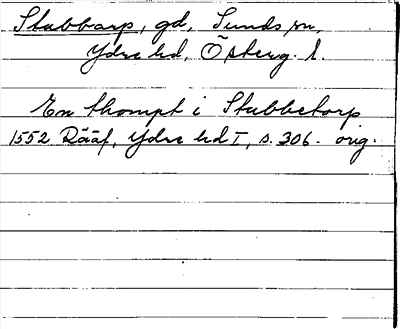 Stabbarp, gd, Sunds sn,
Ydre hd, Österg. l.
En thompt i Stubbetorp
1552 Rääf, Ydre hd I, s. 306. orig.